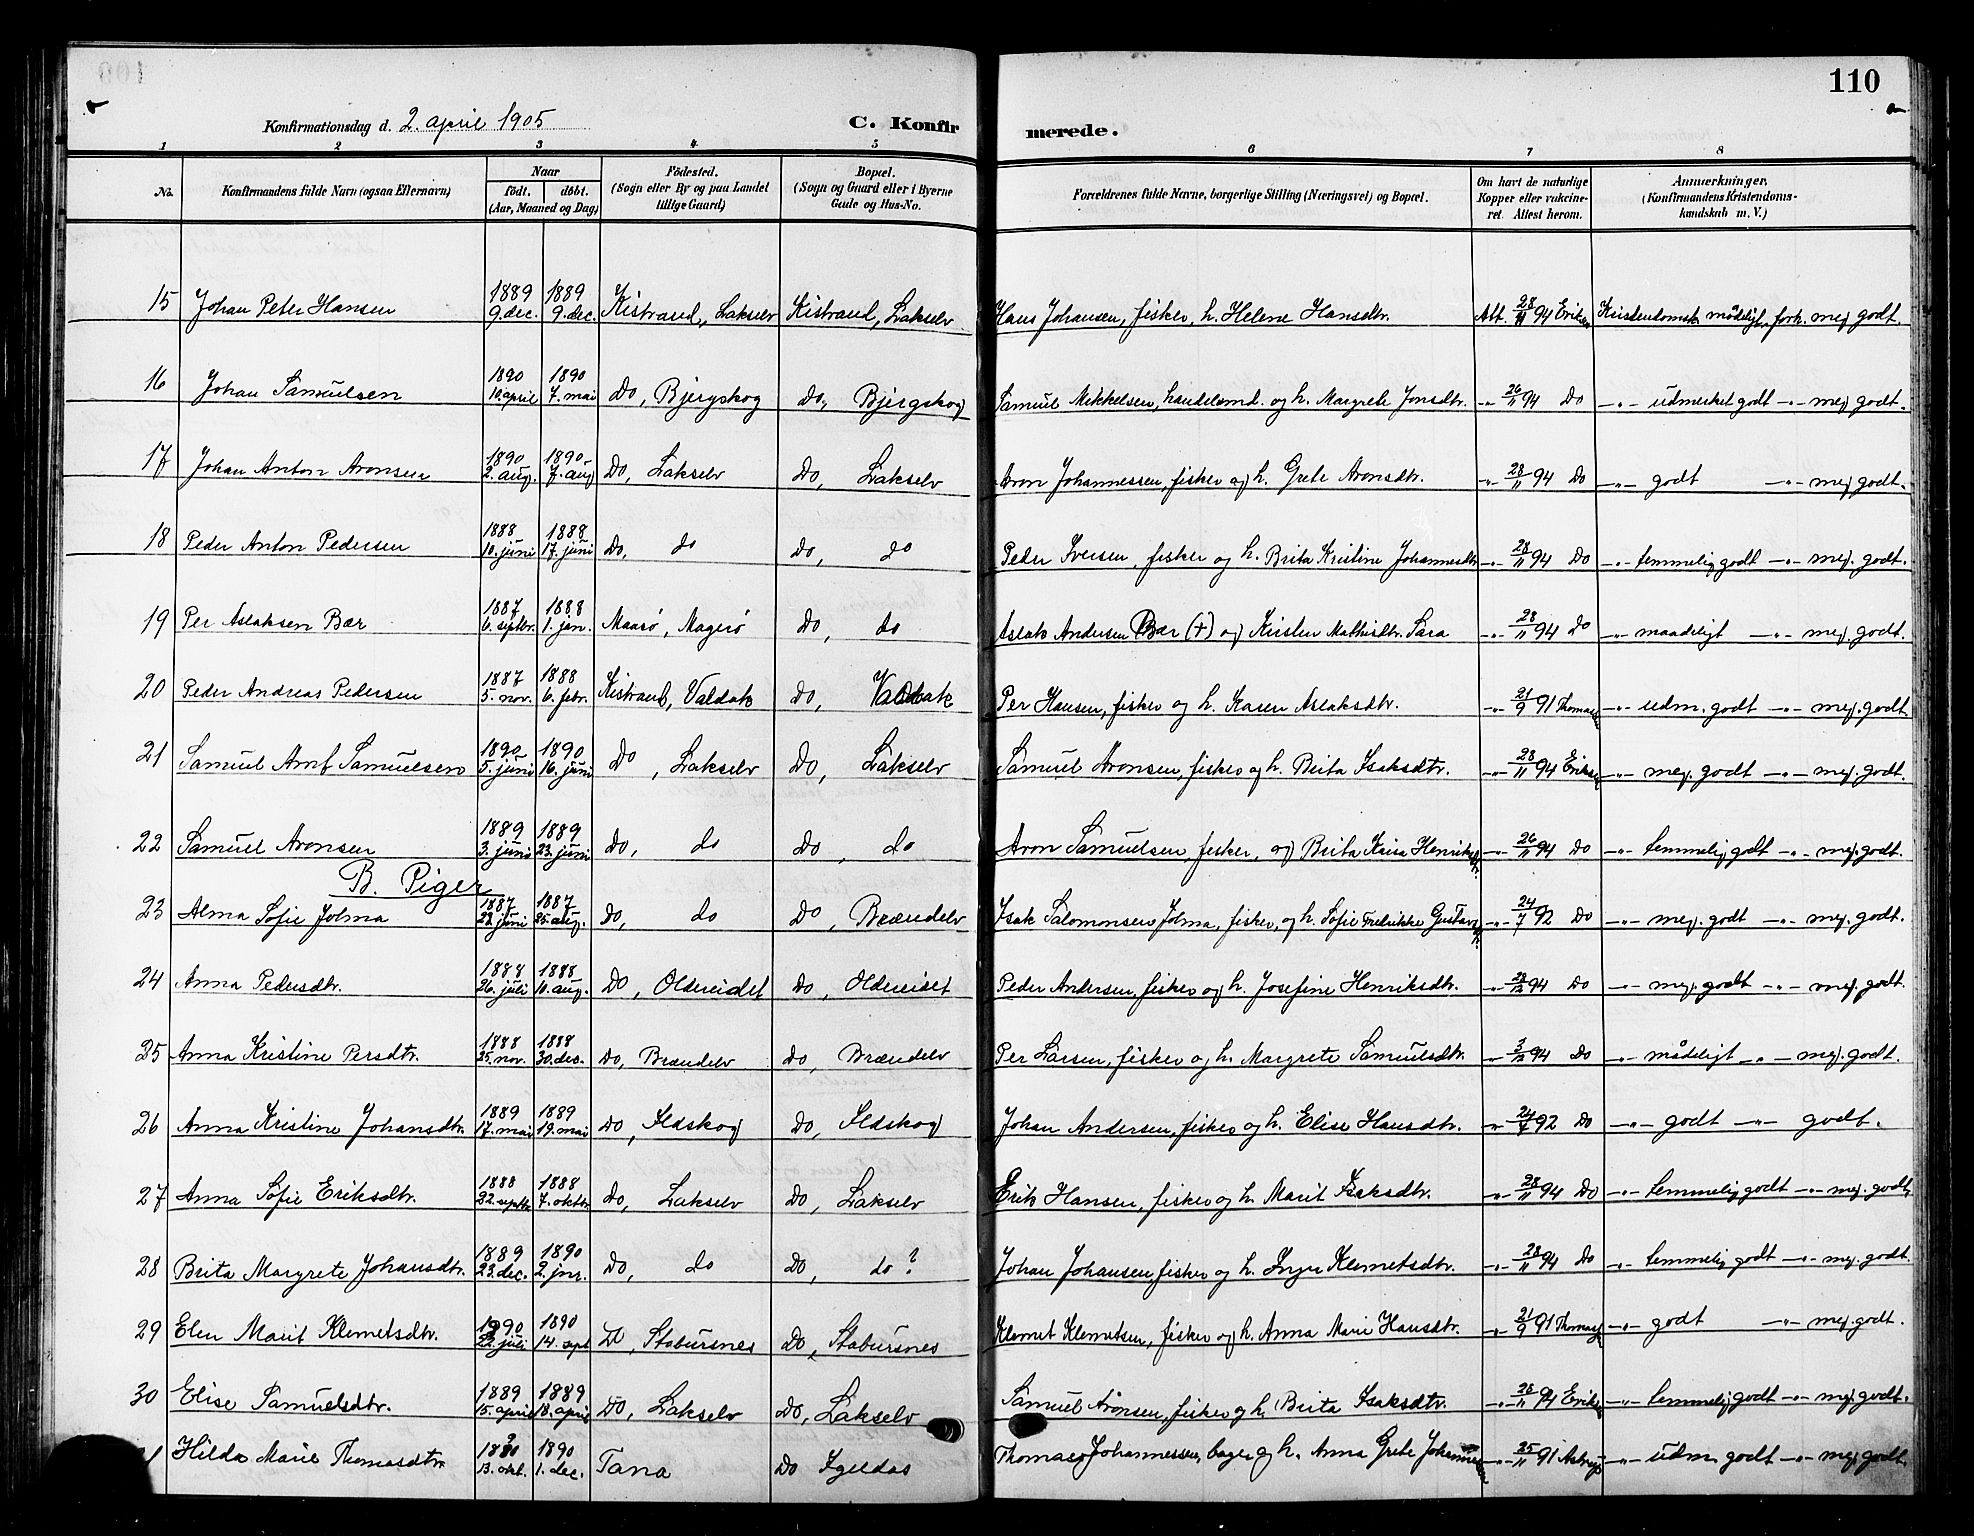 110
Konfirmationsdag d. 2. april 1905
C. Konfirmerede.
1 2 3 4 5 6 7 8
No. Konfirmandens fulde Navn (ogsaa Efternavn) Naar født. døbt. (Aar, Maaned og Dag) Fødested. (Sogn eller By og paa Landet tillige Gaard) Bopæl. (Sogn og Gaard eller i Byerne Gade og Hus-No. Forældrenes fulde Navne, borgerlige Stilling (Næringsvei) og Bopæl. Om havt de naturlige Kopper eller vakcineret. Attest herom. Anmærkninger. (Konfirmandens Kristendomskundskab m. V.)
15 Johan Peter Hansen 1889 9. dec. 1889 9. dec. Kistrand, Lakselv Kistrand, Lakselv Hans Johansen, fisker, h. Helene Hansdtr. Att. 28/11 94 Eriksen Kristendomsk. mådeligt, forh. meg. godt.
16 Johan Samuelsen 1890 10. april 1890 7. mai Do, Bjergskog Do, Bjergskog Samuel Mikkelsen, handelsmd. og h. Margrete Jonsdtr. -"- 26/11 94 Do -"- udmerket godt -"- meg godt.
17 Johan Anton Aronsen 1890 2. aug. 1890 7. aug Do, Lakselv Do, Lakselv Aron Johannessen, fisker og h. Grete Aronsdtr. -"- 28/11 94 Do -"- godt -"- meg godt.
18 Peder Anton Pedersen 1888 10. juni 1888 17. juni Do, do Do, do Peder Iversen, fisker og h. Brita Kristine Johannesdtr -"- 28/11 94 Do -"- temmelig godt -"- meg. godt.
19 Per Aslaksen Bær 1887 6. septbr. 1888 1. jan. Maasø, Magerø Do, do Aslak Andersen Bær (+) og Kirsten Mathisdtr. Sara -"- 28/11 94 Do -"- maadeligt -"- meg. godt.
20 Peder Andreas Pedersen 1887 5. nov. 1888 6. febr. Kistrand, Valdak Do, Valdak Per Hansen, fisker og h. Karen Aslaksdtr. -"- 21/9 91 Thomas -"- udm. godt -"- meg. godt.
21 Samuel Arnt Samuelsen 1890 5. juni 1890 16. juni Do, Lakselv Do, Lakselv Samuel Aronsen, fisker og h. Brita Isaksdtr. -"- 28/11 94 Eriksen -"- meg. godt -"- meg. godt.
22 Samuel Aronsen 1889 3. juni 1889 23. juni Do, do Do, do Aron Samuelsen, fisker, og Brita Kaisa Henriksdtr. -"- 26/11 94 Do -"- temmelig godt -"- meg. godt.
B. Piger
23 Alma Sofie Jolma 1887 22 juni 1887 25. aug. Do, do Do, Brændelv Isak Salomonsen Jolma, fisker, og h. Sofie Fredrikke Gustavsdtr. -"- 24/7 92 Do -"- meg. godt -"- meg. godt.
24 Anna Pedersdtr. 1888 26. juli 1888 10. aug. Do, Oldereidet Do, Oldereidet Peder Andersen, fisker og h. Josefine Henriksdtr. -"- 28/12 94 Do -"- meg. godt -"- meg. godt.
25 Anna Kristine Persdtr. 1888 25. nov. 1888 30. dec. Do, Brændelv Do, Brændelv Per Larsen, fisker og h. Margrete Samuelsdtr. -"- 3/12 94 Do -"- mådeligt -"- meg. godt.
26 Anna Kristine Johansdtr. 1889 17. mai 1889 19. mai Do, Ildskog Do, Ildskog Johan Andersen, fisker og h. Elise Hansdtr. -"- 24/7 92 Do -"- godt -"- godt.
27 Anna Sofie Eriksdtr. 1888 22. septbr. 1888 7. oktbr. Do, Lakselv Do, Lakselv Erik Hansen, fisker og h. Marit Isaksdtr. -"- 28/11 94 Do -"- temmelig godt -"- meg. godt,
28 Brita Margrete Johansdtr. 1889 23. dec. 1890 2. jnr. Do, do Do, do? Johan Johansen, fisker og h. Inger Klemetsdtr. -"- 28/11 94 Do -"- temmelig godt -"- meg. godt.
29 Elen Marit Klemetsdtr. 1890 22. juli 1890 14. sept Do, Stabursnes Do, Stabursnes Klemet Klemetsen, fisker og h. Anna Marie Hansdtr. -"- 21/9 91 Thomas -"- godt -"- meg. godt.
30 Elise Samuelsdtr. 1889 15. april 1889 18. april Do, Lakselv Do, Lakselv Samuel Aronsen, fisker og h. Brita Isaksdtr. -"- 28/11 94 Eriksen -"- temmelig godt -"- meg. godt.
Hilda Marie Thomasdtr. 1890 13. okt. 1890 1. dec. Tana Do Igeldas Thomas Johannessen, bager og h. Anna Grete -"- 25/11 91 -"- udm. godt -"- meg. godt.